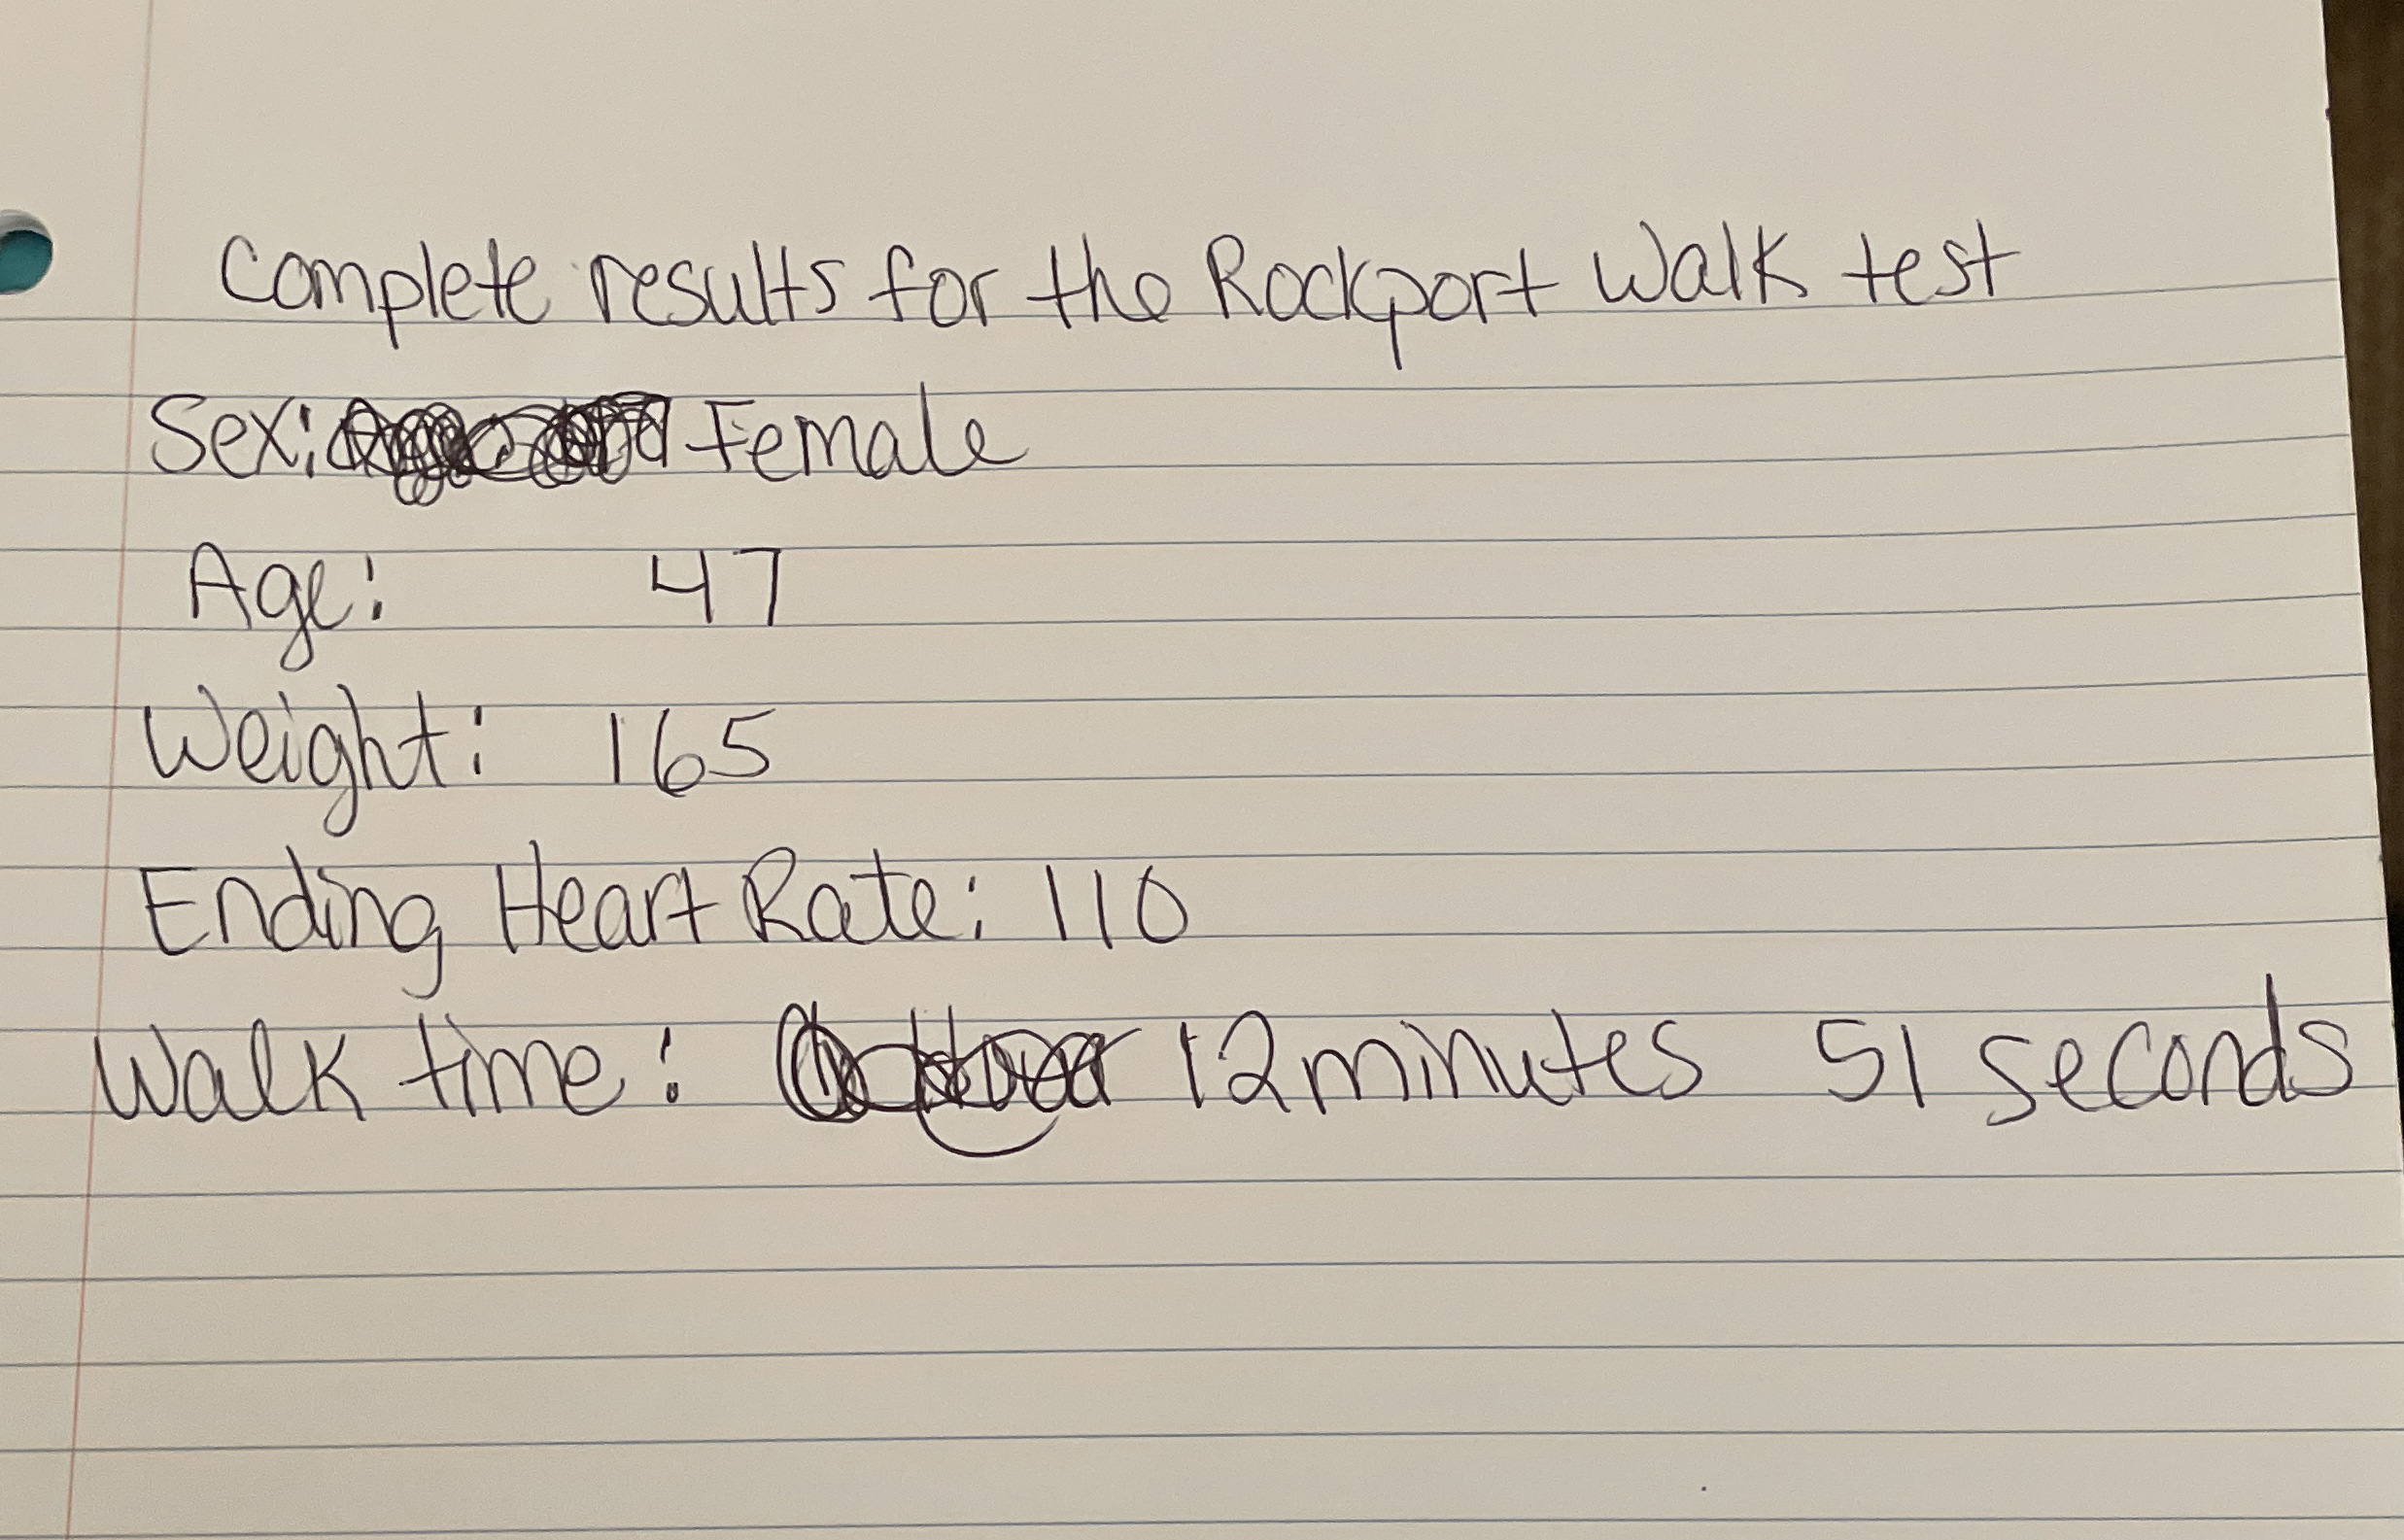 Complete results for the Rockport Walk test
Sex: Female
Age: 47
Weight: 165
Ending Heart Rate: 110
Walk time: 12 minutes 51 seconds